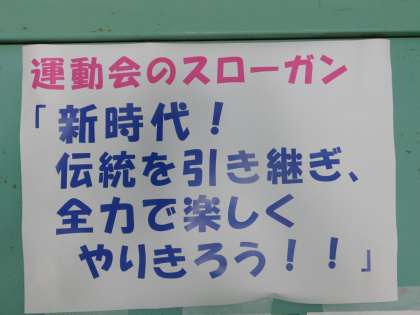 運動会のスローガン
「新時代！
伝統を引き継ぎ、
全力で楽しく
やりきろう！！」